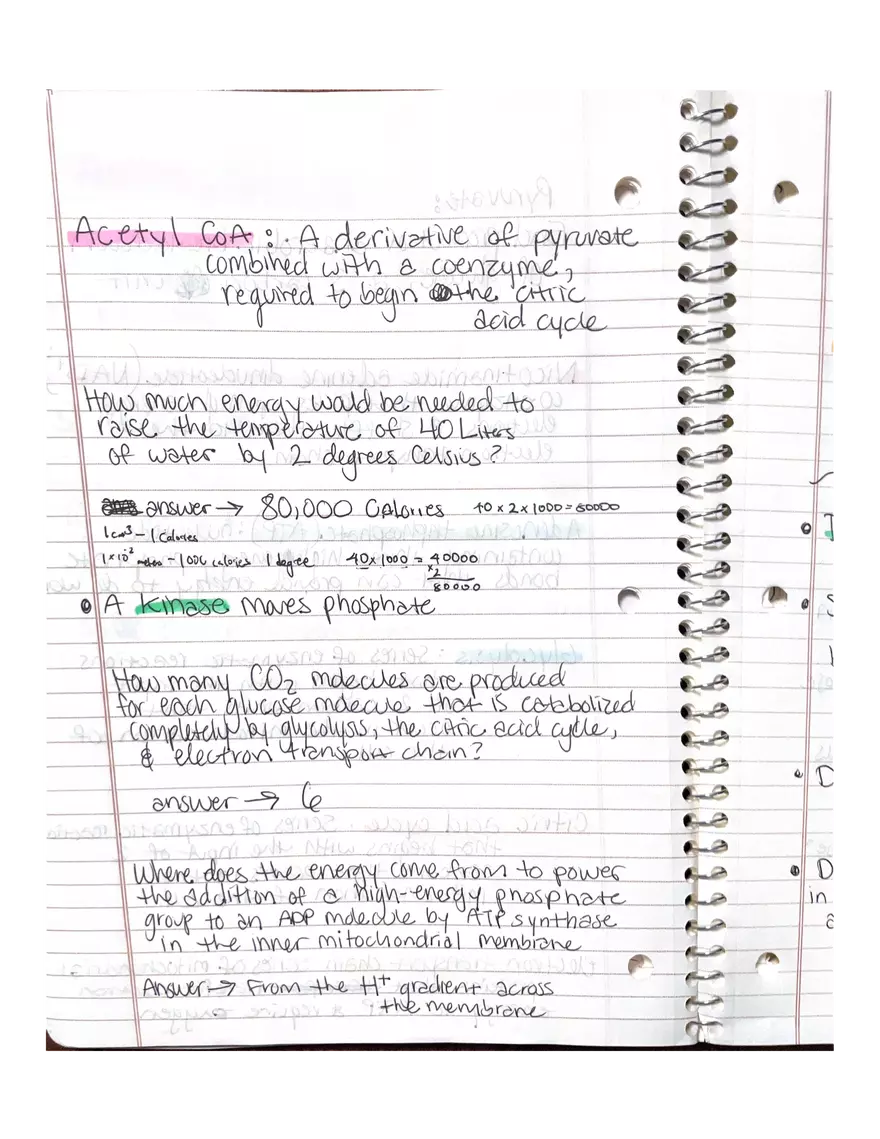 Acetyl CoA : . A derivative of pyruvate
combined with a coenzyme,
required to begin the citric
acid cycle
How much energy would be needed to
raise the temperature of 40 Liters
of water by 2 degrees Celsius?
answer → 80,000 Calories 40 x 2 x 1000 = 80000
1 cm³ - 1 Calories
1x10⁻² - 1000 calories 1 degree 40x 1000 = 40000
x2
80000
• A Kinase moves phosphate
How many CO2 molecules are produced
for each glucose molecule that is catabolized
completely by glycolysis, the citric acid cycle,
& electron transport chain?
answer → 6
Where does the energy come from to power
the addition of a high-energy phosphate
group to an ADP molecule by ATP synthase
in the inner mitochondrial membrane
Answer → From the H+ gradient across
the membrane